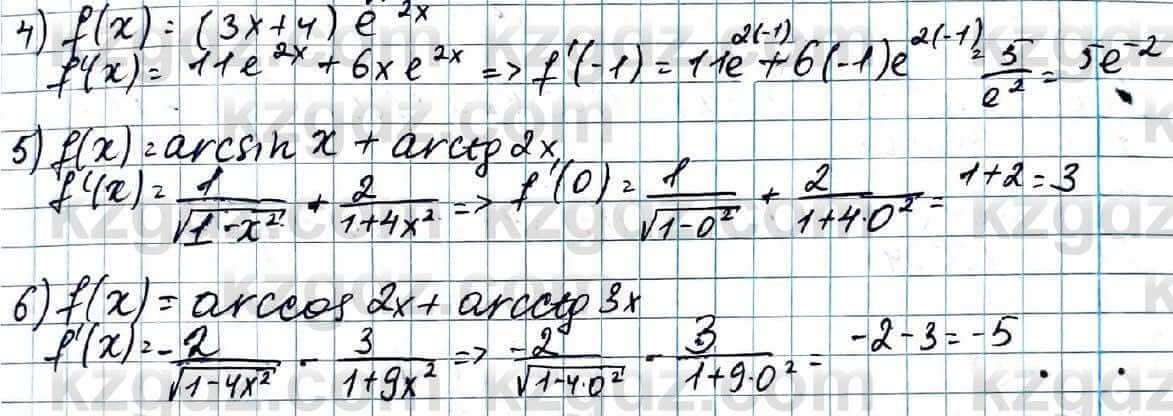 4) f(x) = (3x+4) e^{2x}
f'(x) = 11e^{2x} + 6xe^{2x} => f'(-1) = 11e^{2(-1)} + 6(-1)e^{2(-1)} = 5/e^2 = 5e^{-2}
5) f(x) = arcsin x + arctg 2x
f'(x) = 1/√(1-x^2) + 2/(1+4x^2) => f'(0) = 1/√(1-0^2) + 2/(1+4·0^2) = 1+2=3
6) f(x) = arccos 2x + arcctg 3x
f'(x) = -2/√(1-4x^2) - 3/(1+9x^2) => -2/√(1-4·0^2) - 3/(1+9·0^2) = -2-3=-5